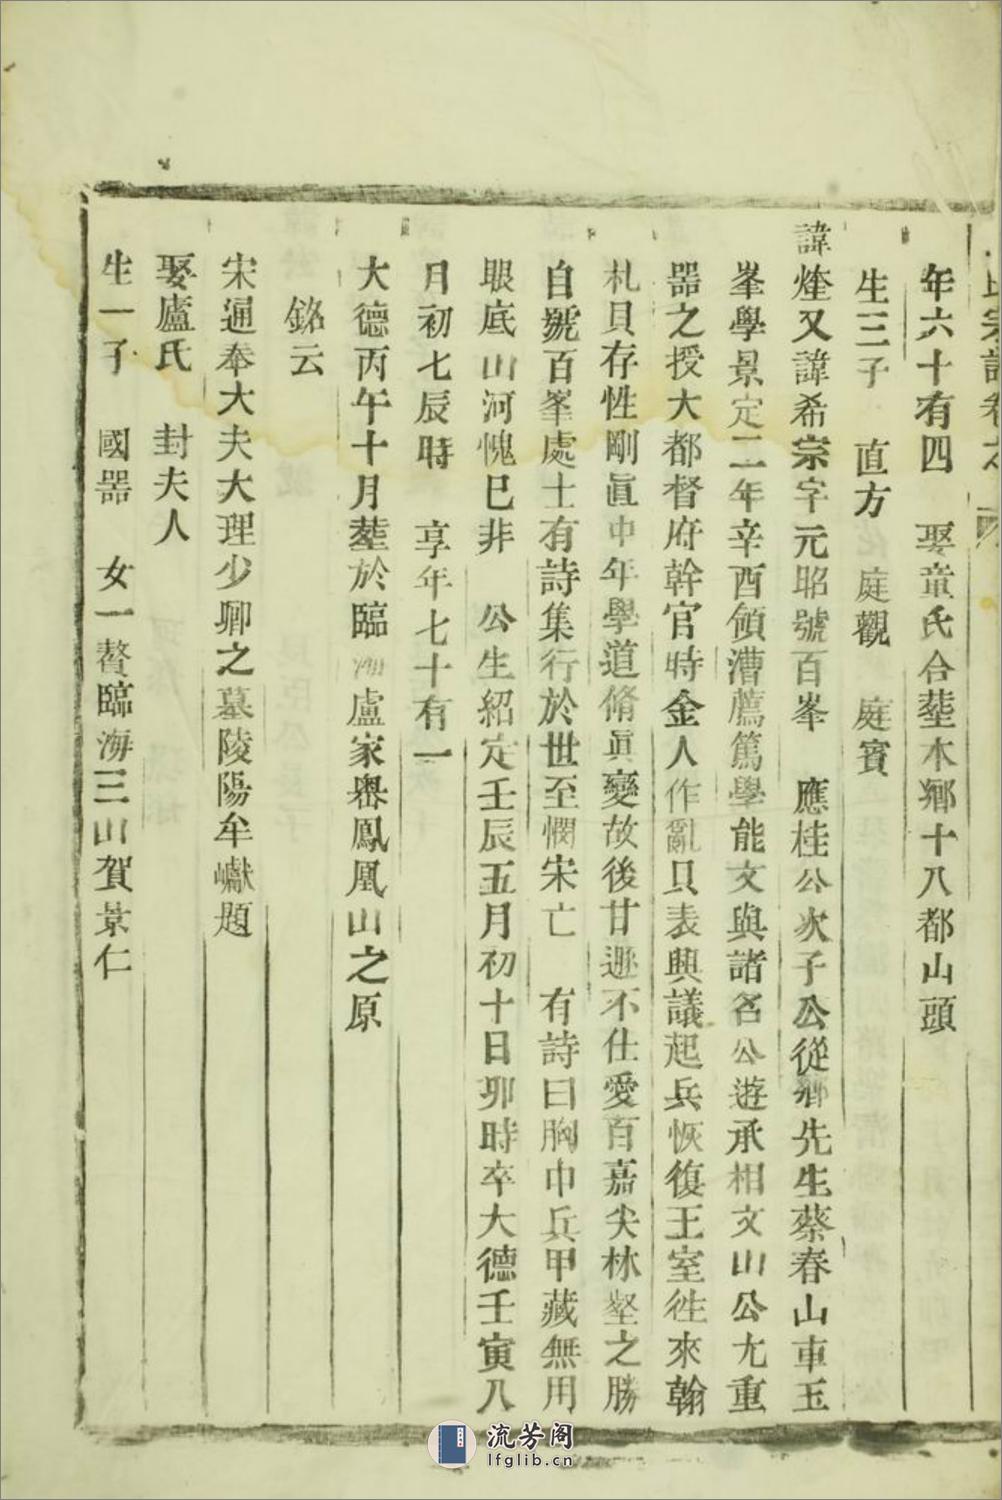 氏宗譜卷之
年六十有四　娶童氏合塟木鄉十八都山頭
生三子　直方　庭觀　庭賓
諱煃又諱希宗字元昭號百峯　應桂公次子公從鄉先生蔡春山車玉
峯學景定二年辛酉領漕薦篤學能文與諸名公遊承相文山公尤重
器之授大都督府幹官時金人作亂具表興議起兵恢復王室徃來翰
札具存性剛眞中年學道脩眞變故後甘遯不仕愛百嘉尖林壑之勝
自號百峯處士有詩集行於世至憫宋亡　有詩曰胸巾兵甲藏無用
眼底山河愧巳非　公生紹定壬辰五月初十日卯時卒大德壬寅八
月初七辰時　享年七十有一
大德丙午十月塟於臨海盧家嶴鳳凰山之原
銘云
宋通奉大夫大理少卿之墓陵陽牟巘題
娶盧氏　封夫人
生一子　國器　女一贅臨海三山賀景仁
流芳阁
lfglib.cn